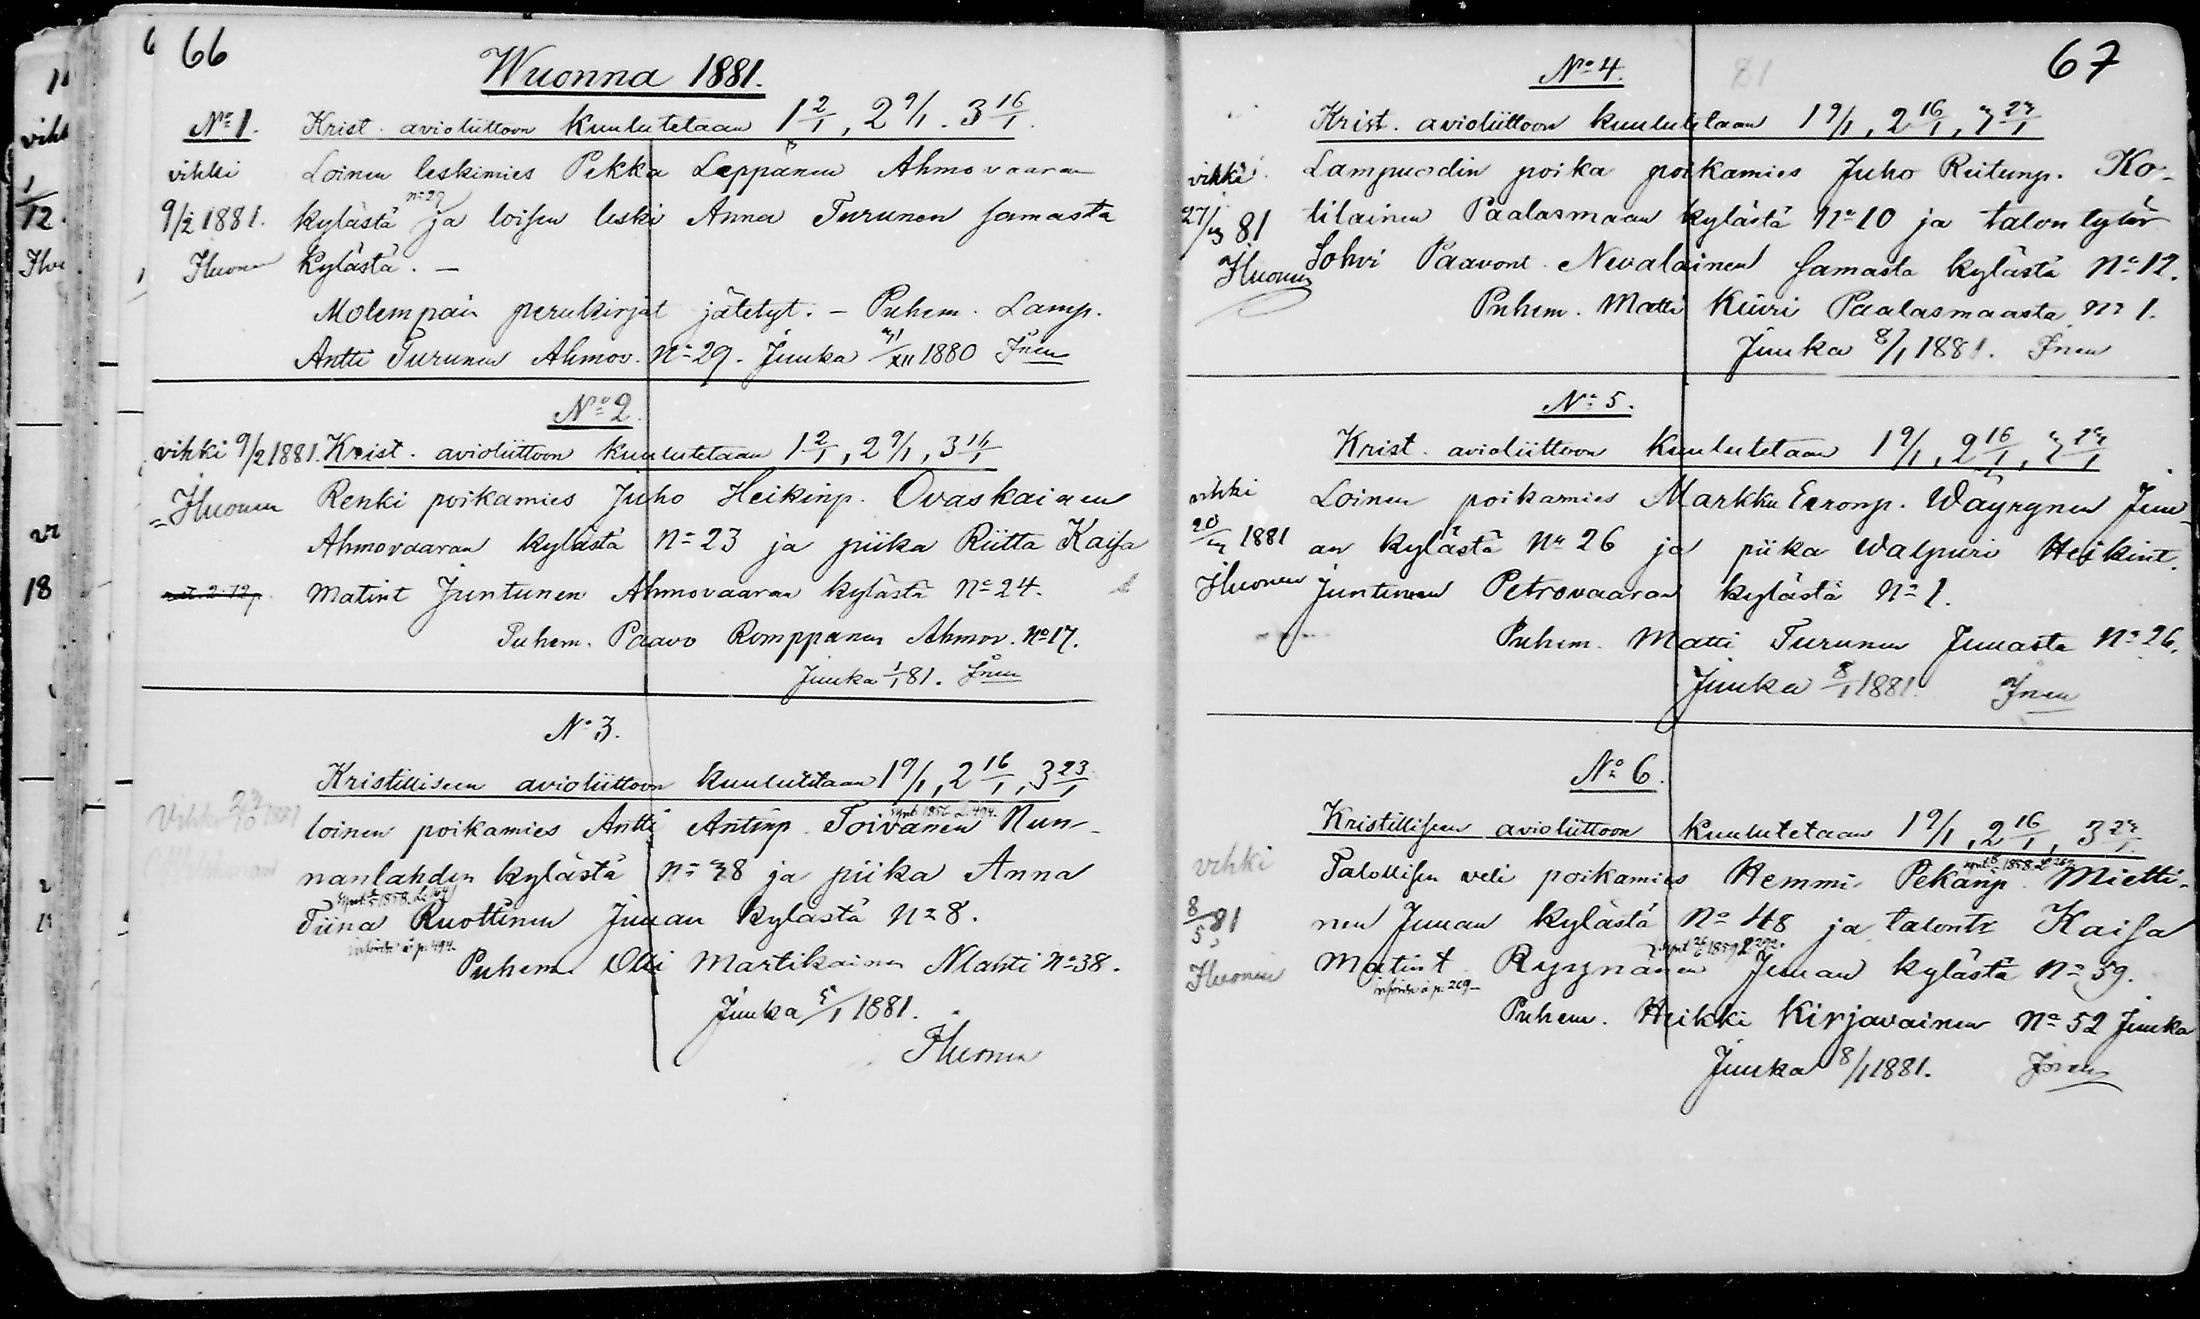 66
Wuonna 1881.
No 1. Krist. avioliittoon kuulutetaan 1 2/1, 2 9/1. 3 16/1.
vihki Loinen leskimies Pekka Leppänen Ahmovaaran
9/2 1881. kylästä no 29 ja loisen leski Anna Turunen samasta
Ihuonen kylästä. —
Molempain perukirjat jätetyt. — Puhem. Lamp.
Antti Turunen Ahmov. No 29. Juuka 31/XII 1880 Inen
No 2.
vihki 9/2 1881. Krist. avioliittoon kuulutetaan 1 2/1, 2 9/1, 3 16/1
Ihuonen Renki poikamies Juho Heikinp. Ovaskainen
Ahmovaaran kylästä No 23 ja piika Riitta Kaisa
Matint Juntunen Ahmovaaran kylästä No 24.
Puhem. Paavo Romppanen Ahmov. No 17.
Juuka 1/1 81. Inen
No 3.
Kristilliseen avioliittoon kuulutetaan 1 9/1, 2 16/1, 3 23/1
Vihki 23/10 1881 loinen poikamies Antti Antinp. Toivanen Nun-
nanlahden kylästä No 38 ja piika Anna
Tiina Ruottinen Juuan kylästä No 8.
Puhem. Olli Martikainen Nlahti No 38.
Juuka 5/1 1881.
Ihuonen
67
81
No 4.
Krist. avioliittoon kuulutetaan 1 9/1, 2 16/1, 3 23/1
vihki Lampuodin poika poikamies Juho Reitunp. Ko-
27/3 81 tilainen Paalasmaan kylästä No 10 ja talon tytär
Ihuonen Sohvi Paavont. Nevalainen samasta kylästä No 12.
Puhem. Matti Kiiri Paalasmaasta No 1.
Juuka 8/1 1881. Inen
No 5.
Krist. avioliittoon kuulutetaan 1 9/1, 2 16/1, 3 23/1
vihki Loinen poikamies Markku Eeronp. Wäyrynen Juu-
20/3 1881 an kylästä No 26 ja piika Walpuri Heikint.
Ihuonen Juntunen Petrovaaran kylästä No 1.
Puhem. Matti Turunen Juuasta No 26.
Juuka 8/1 1881. Inen
No 6.
Kristilliseen avioliittoon kuulutetaan 1 9/1, 2 16/1, 3 23/1
vihki Talollisen veli poikamies Hemmi Pekanp. Mietti-
8/5 81 nen Juuan kylästä No 48 ja talontr Kaisa
Ihuonen Matint Ryynänen Juuan kylästä No 59.
Puhem. Heikki Kirjavainen No 52 Juuka
Juuka 8/1 1881. Inen